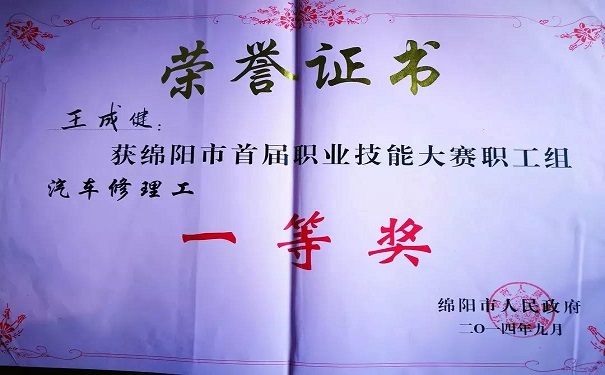 荣誉证书
王成健：
获绵阳市首届职业技能大赛职工组
汽车修理工
一等奖
绵阳市人民政府
二〇一四年九月